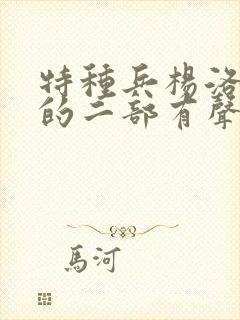 特種兵楊洛
的二部有聲
馬河